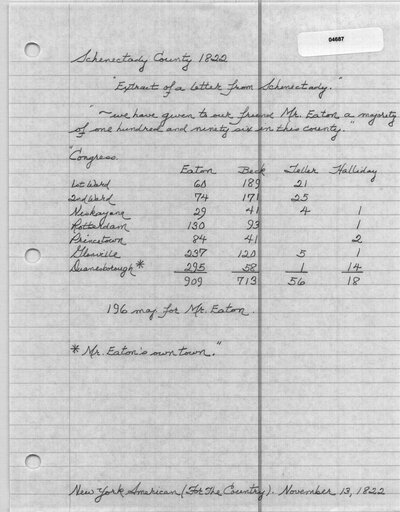 04687
Schenectady County 1822
"Extract of a letter from Schenectady."
"~we have given to our friend Mr. Eaton a majority
of one hundred and ninety six in this county."
"Congress.
Eaton Beck Teller Halladay
1st Ward 60 189 21
2nd Ward 74 171 25
Niskayuna 29 41 4 1
Rotterdam 130 93 1
Princetown 84 41 2
Glenville 237 120 5 1
Duanesborough* 295 58 1 14
909 713 56 18
196 maj for Mr. Eaton.
* Mr. Eaton's own town."
New York American (For The Country). November 13, 1822